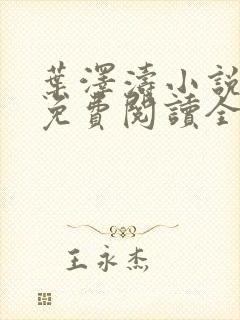 葉澤濤小說
免費閱讀全
王永杰